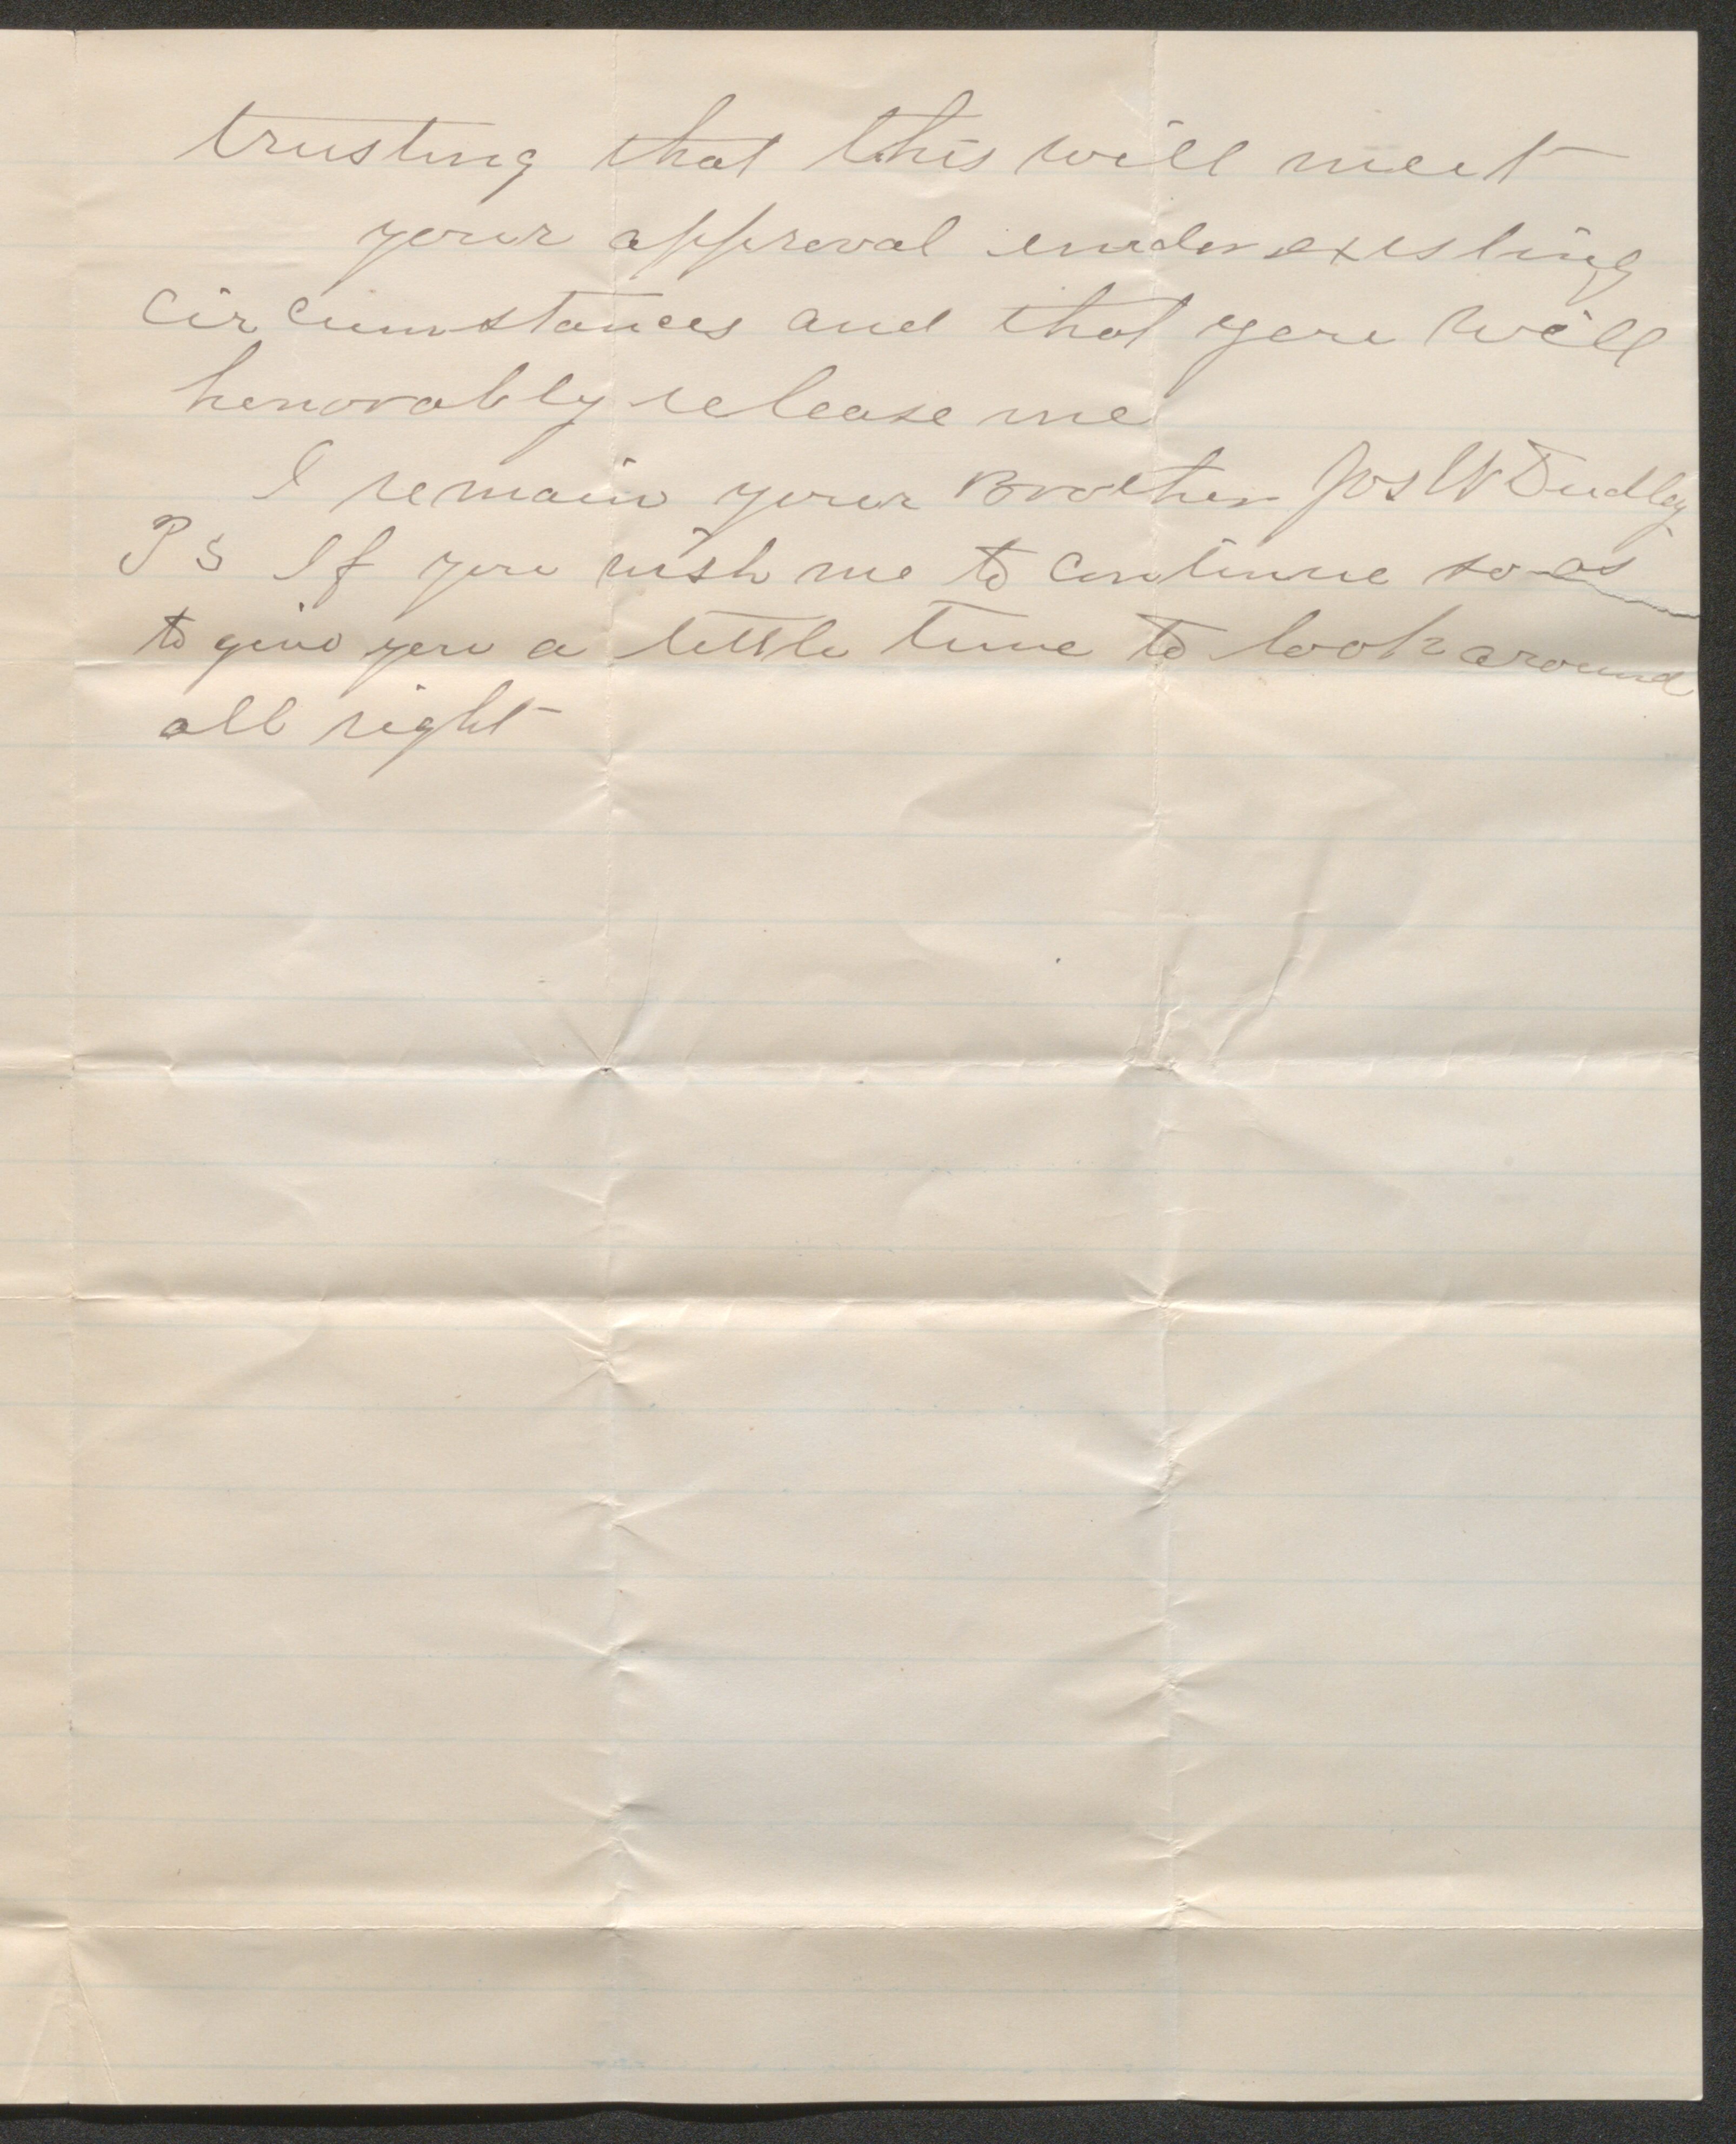 trusting that this will meet
your approval under existing
circumstances and that you will
honorably release me
I remain your Brother Jos W Dudley
PS If you wish me to continue so as
to give you a little time to look around
all right